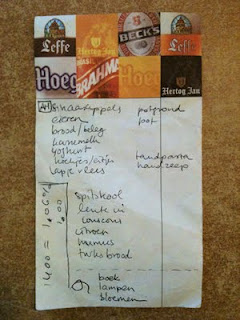 Leffe
Hertog Jan
BECK'S
Leffe
Hoeg
BRAHMA
Hertog Jan
AH
sinaasappels
eieren
brood/beleg
karnemelk
yoghurt
koekjes/eitjes
lapje vlees
potgrond
pot
tandpasta
handzeep
spitskool
lente ui
couscous
citroen
humus
turks brood
boek
lampen
bloemen